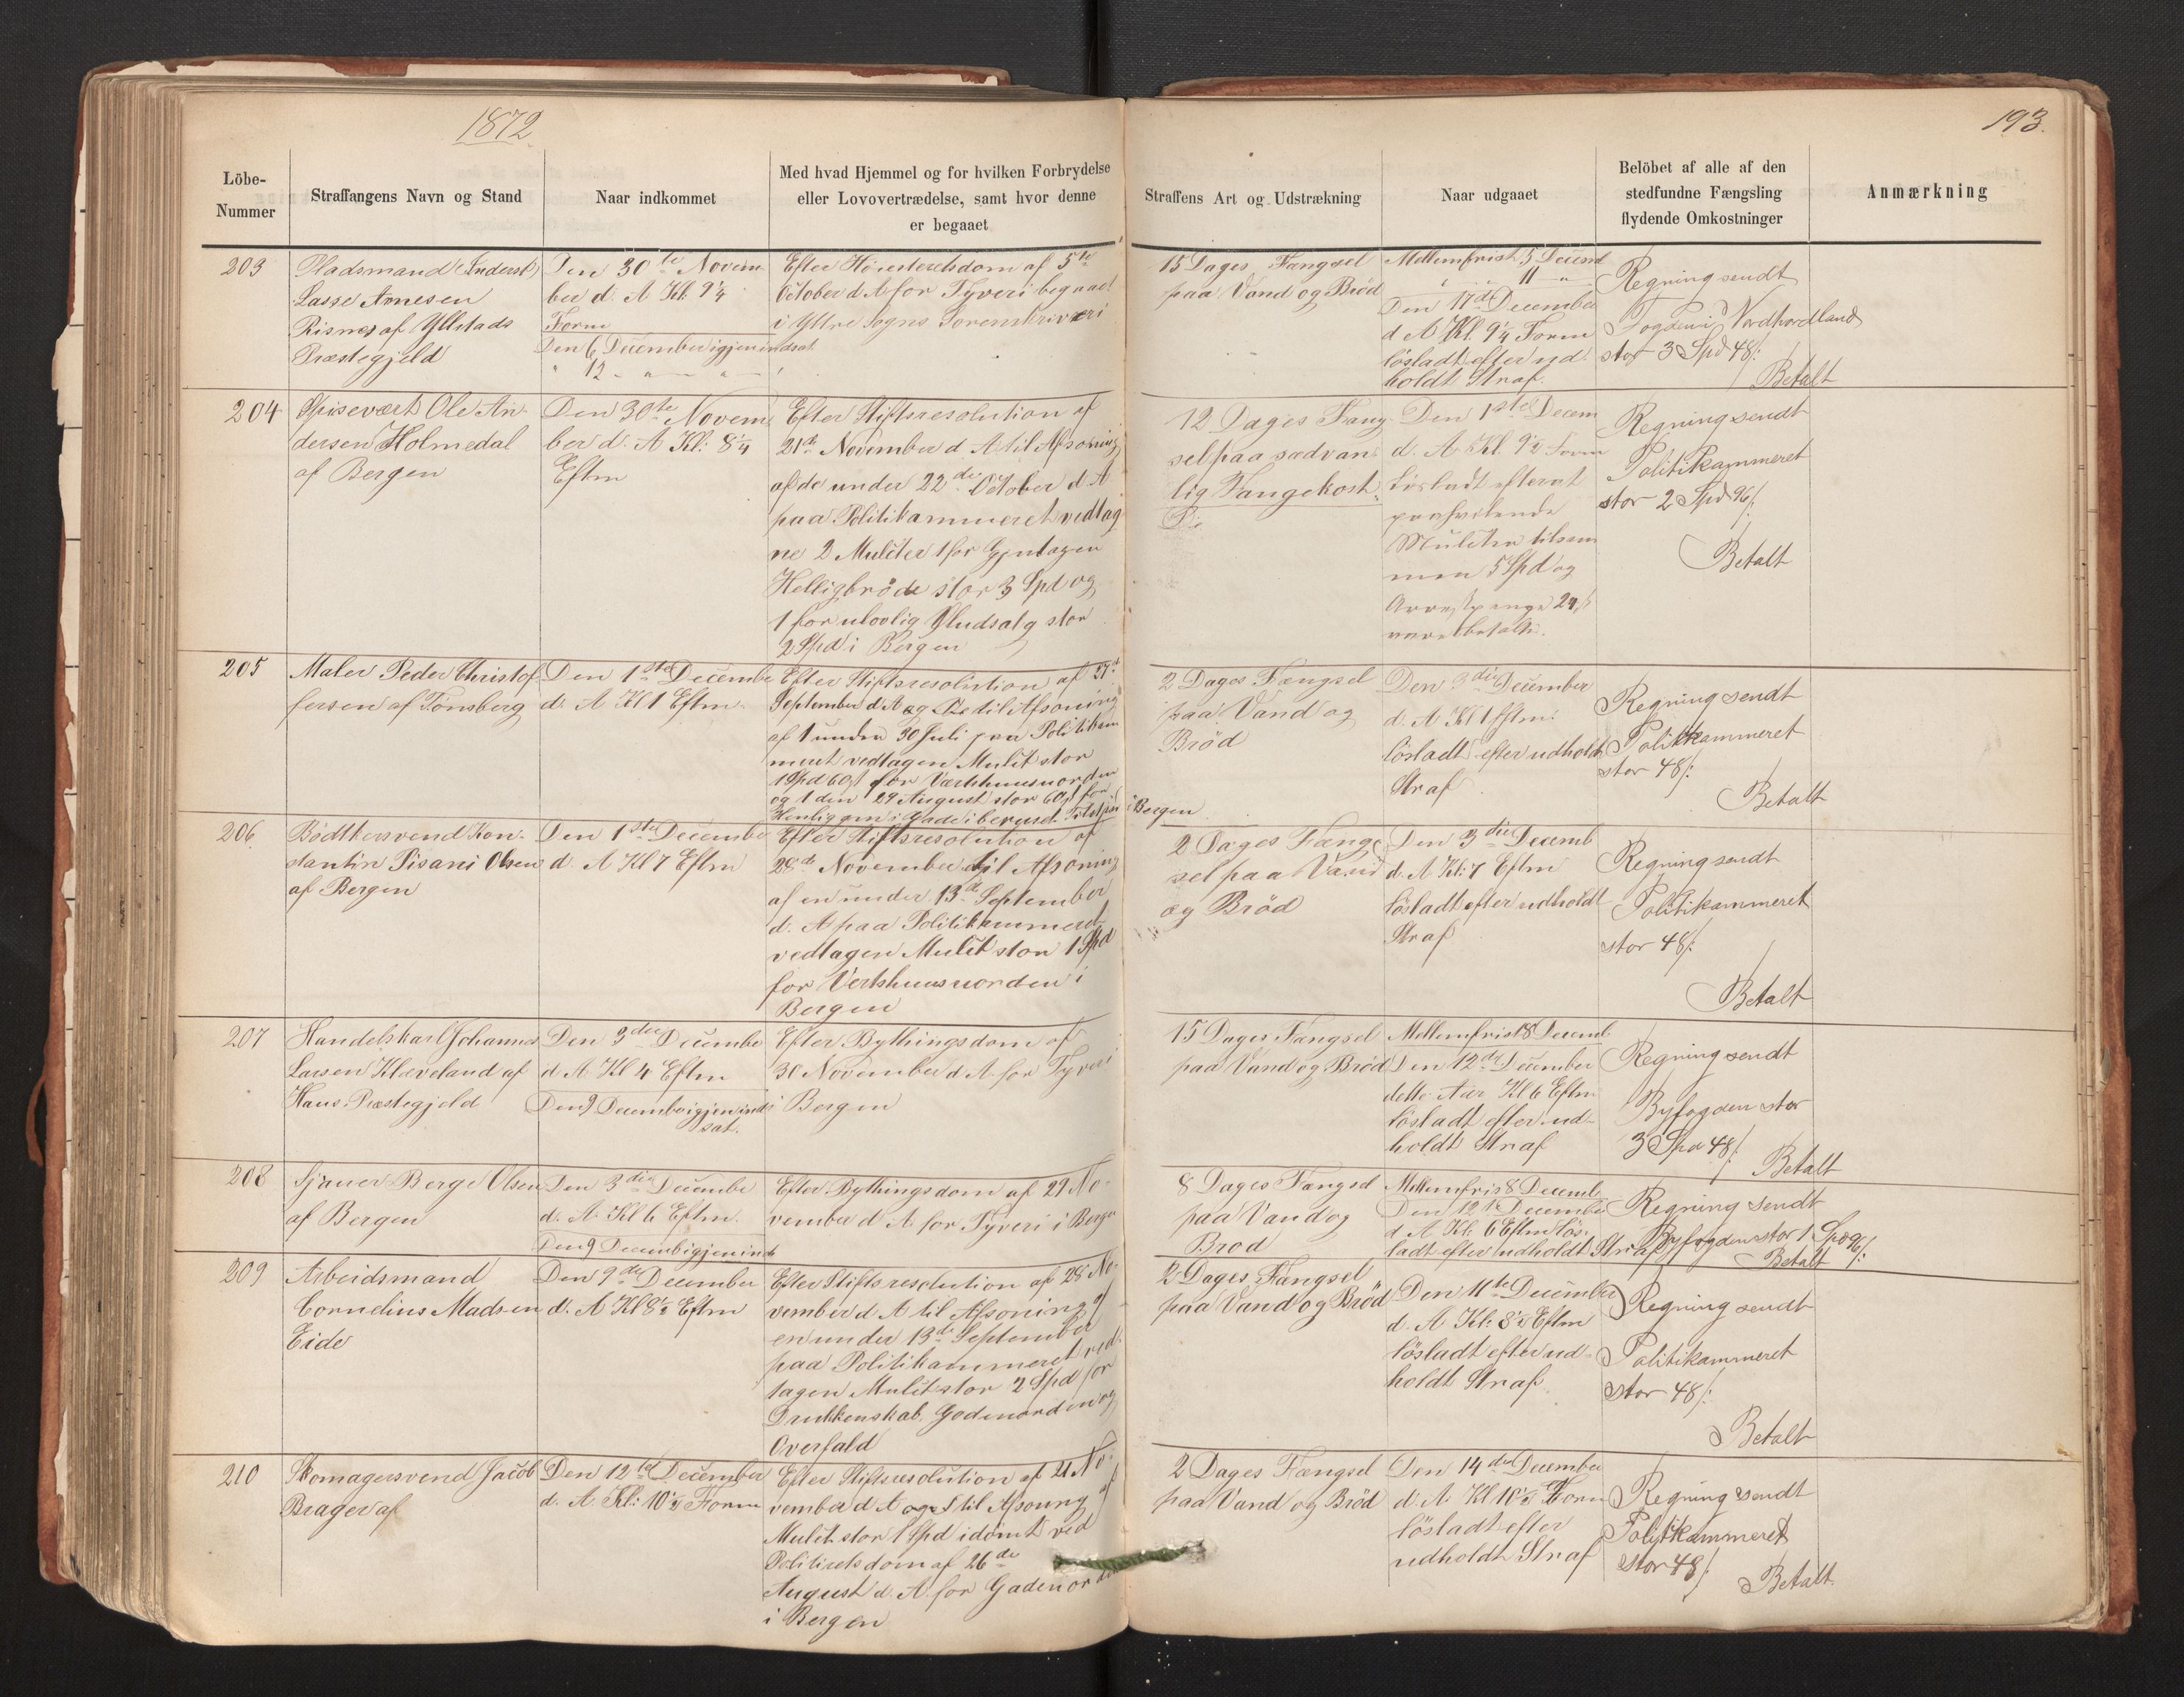 1872.
193.
Löbe-
Nummer
Straffangens Navn og Stand
Naar indkommet
Med hvad Hjemmel og for hvilken Forbrydelse
eller Lovovertrædelse, samt hvor denne
er begaaet
Straffens Art og Udstrækning
Naar udgaaet
Belöbet af alle af den
stedfundne Fængsling
flydende Omkostninger
Anmærkning
203
Pladsmand
Lasse Arnesen
Risnes af
Præstegjeld
Den 30te Novem
ber d. A Kl. 9¼
Form
Den 6 December igjen indsat
" 12 " " "
Efter Höiesteretsdom af 5te
October d A for Tyveri begaaet
i Yttre Sogns Sorenskriveri
15 Dages Fængsel
paa Vand og Bröd
Mellemfrist 5 Decemb
" 11 "
Den 17de December
d A Kl. 9¼ Form
lösladt efter ud-
holdt Straf.
Regning sendt
Fogden i Nordhordland
stor 3 Spd 48/:
Betalt
204
Spisevært Ole An-
dersen Holmedal
af Bergen
Den 30te Novem
ber d. A Kl: 8¼
Eftm
Efter Stiftsresolution af
21de November d. A til Afsoning
af de under 22de October d. A
paa Politikammeret vedtag
ne 2 Mulcter 1 for Gjentagen
Helligbröde stor 3 Spd og
1 for ulovlig Ududsalg stor
2 Spd i Bergen
12 Dages Fæng-
sel paa sædvan-
lig Fangekost
Den 1ste Decem
d. A. Kl. 9½ Form
Lösladt efterat
paahvilende
Mulcter tilsam
men 5 Spd og
Arrestpenge 24/:
vare betalte.
Regning sendt
Politikammeret
stor 2 Spd 96/:
Betalt
205
Maler Peder Christof
fersen af Tönsberg
Den 1ste Decembe
d. A Kl 1 Eftm
Efter Stiftsresolution af 27de
September d. A og til Afsoning
af 1 under 30 Juli paa Politikam
meret vedtagen Mulct stor
1 Spd 60/: for Værtshuusuorden
og 1 den 29 August stor 60/: for
Henliggen i Gade i beruset Tilstand i Bergen
2 Dages Fængsel
paa Vand og
Bröd
Den 3die December
d. A Kl 1 Eftm:
lösladt efter udholdt
Straf
Regning sendt
Politikammeret
stor 48/:
Betalt
206.
Bödtkersvend Kon-
stantin Pisani Olsen
af Bergen
Den 1ste Decembe
d. A Kl 7 Eftm
Efter Stiftsresolution af
28de November til Afsoning
af en under 13de September
d. A paa Politikammeret
vedtagen Mulct stor 1 Spd
for Vertshuusuorden i
Bergen
2 Dages Fæng
sel paa Vand
og Bröd
Den 3die Decemb
d. A Kl: 7 Eftm
lösladt efter udholdt
Straf
Regning sendt
Politikammeret
stor 48/:
Betalt
207
Handelskarl Johannes
Larsen Klæveland af
Haus Præstegjeld
Den 3die Decembe
d. A Kl 4 Eftm
Den 9 December igjen ind
sat.
Efter Bythingsdom af
30 November d. A for Tyveri
i Bergen
15 Dages Fængsel
paa Vand og Bröd
Mellemfrist 8 Decemb
Den 12de December
dette Aar Kl 6 Eftm
lösladt efter ud-
holdt Straf
Regning sendt
Byfogden stor
3 Spd 48/:
Betalt
208
Sjauer Berge Olsen
af Bergen
Den 3die Decembe
d. A. Kl 6 Eftm.
Den 9 Decemb igjen ind
Efter Bythingsdom af 29 No-
vember d. A for Tyveri i Bergen
8 Dages Fængsel
paa Vand og
Bröd
Mellemfrist 8 Decemb
Den 12te December
d A Kl. 6 Eftm lös-
ladt efter udholdt Straf
Regning sendt
Byfogden stor 1 Spd 96/:
Betalt
209
Arbeidsmand
Cornelius Madsen
Eide
Den 9de December
d. A Kl 8½ Eftm
Efter Stiftsresolution af 28 No-
vember d. A til Afsoning af
en under 13de September
paa Politikammeret ved-
tagen Mulct stor 2 Spd for
Drukkenskab, Gadeuorden og
Overfald
2 Dages Fængsel
paa Vand og Bröd
Den 11te December
d. A Kl: 8½ Eftm
lösladt efter ud-
holdt Straf.
Regning sendt
Politikammeret
stor 48/:
Betalt
210
Skomagersvend Jacob
Brager af
Den 12te December
d. A. Kl: 10½ Form
Efter Stiftsresolution af 21 No-
vember d. A til Afsoning af
Mulct stor 1 Spd idömt ved
Politiretsdom af 26de
August d. A. for Gadeuorden
i Bergen
2 Dages Fængsel
paa Vand og Bröd
Den 14de December
d. A. Kl 10½ Form
lösladt efter
udholdt Straf
Regning sendt
Politikammeret
stor 48/:
Betalt.